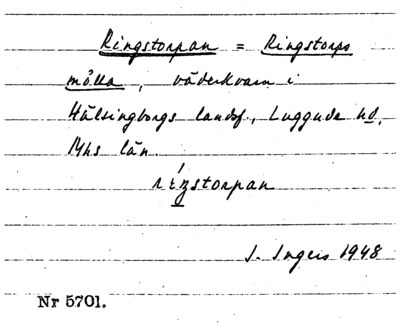 Ringstorpan = Ringstorps
mölla, väderkvarn i
Hälsingborgs landsf., Luggude hd,
Mhs län.
S. Ingers 1948
Nr 5701.